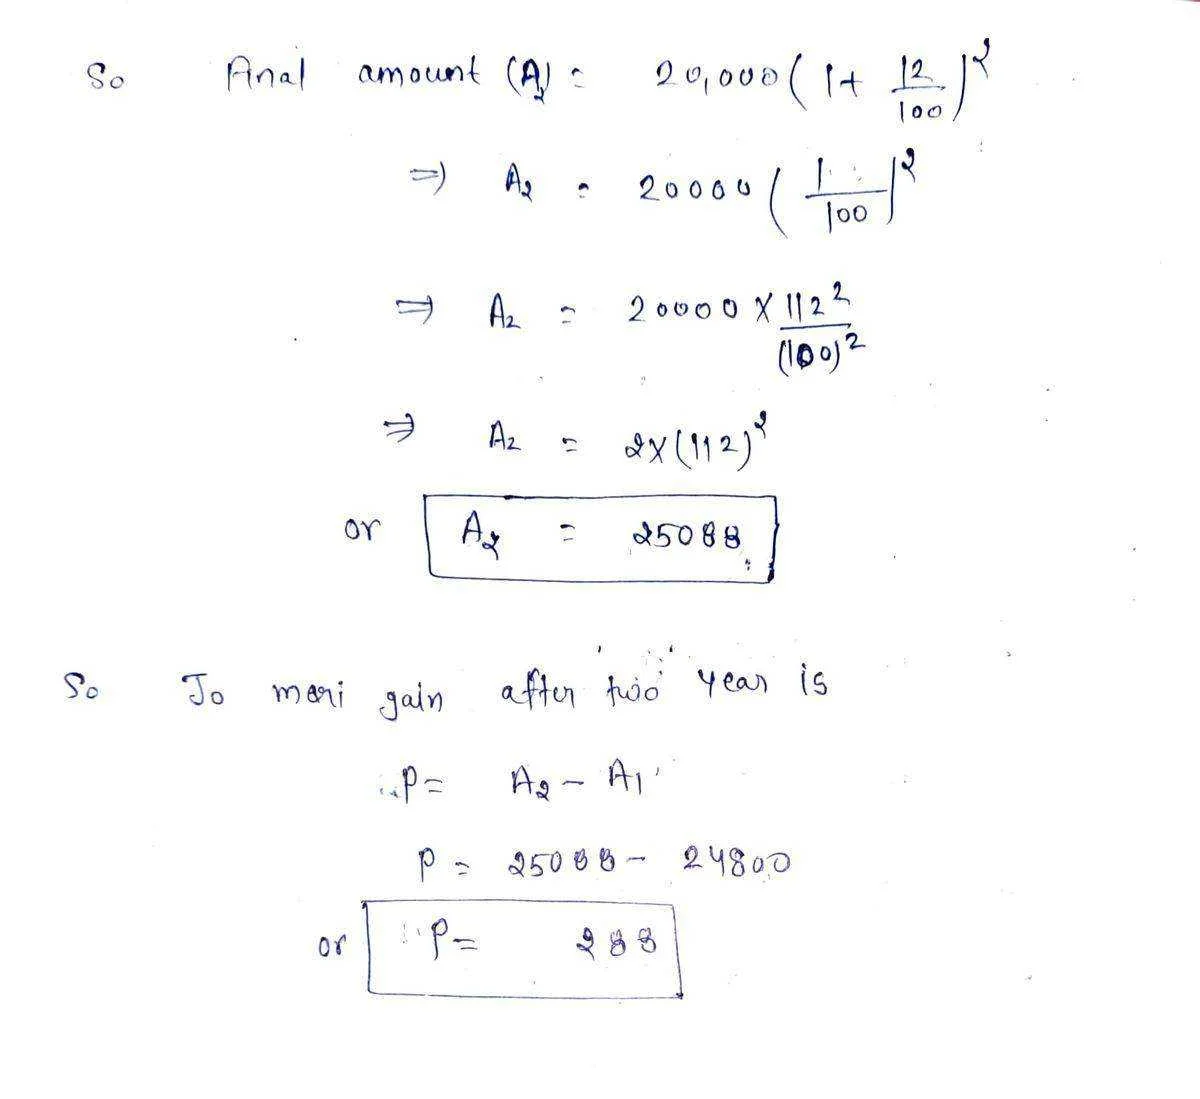 So Final amount (A2) = 20,000 ( 1 + 12/100 )^2
=> A2 = 20000 ( 1 /100 )^2
=> A2 = 20000 X 112^2/(100)^2
=> A2 = 2X(112)^2
or A2 = 25088
So Jo meri gain after two year is
P = A2 - A1
P = 25088 - 24800
or P = 288